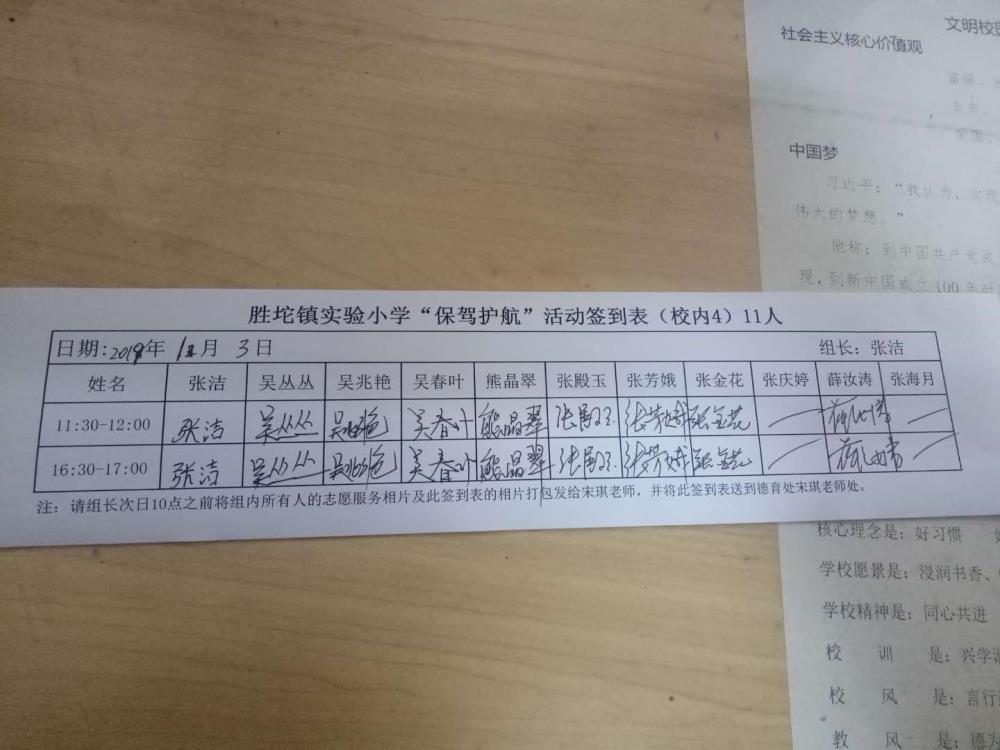 文明校园
社会主义核心价值观
富强
自主、
爱国、
中国梦
习近平：“我认为，实现
伟大的梦想。”
他称：到中国共产党成
现，到新中国成立100年时
胜坨镇实验小学“保驾护航”活动签到表（校内4）11人
日期:2019年 12月 3日 组长：张洁
姓名 张洁 吴丛丛 吴兆艳 吴春叶 熊晶翠 张殿玉 张芳娥 张金花 张庆婷 薛汝涛 张海月
11:30-12:00 张洁 吴丛丛 吴兆艳 吴春叶 熊晶翠 张殿玉 张芳娥 张金花 — 薛汝涛 —
16:30-17:00 张洁 吴丛丛 吴兆艳 吴春叶 熊晶翠 张殿玉 张芳娥 张金花 — 薛汝涛 —
注：请组长次日10点之前将组内所有人的志愿服务相片及此签到表的相片打包发给宋琪老师，并将此签到表送到德育处宋琪老师处。
核心理念是：好习惯
学校愿景是：浸润书香、
学校精神是：同心共进
校 训 是：兴学
校 风 是：言行
教 风 是：德为